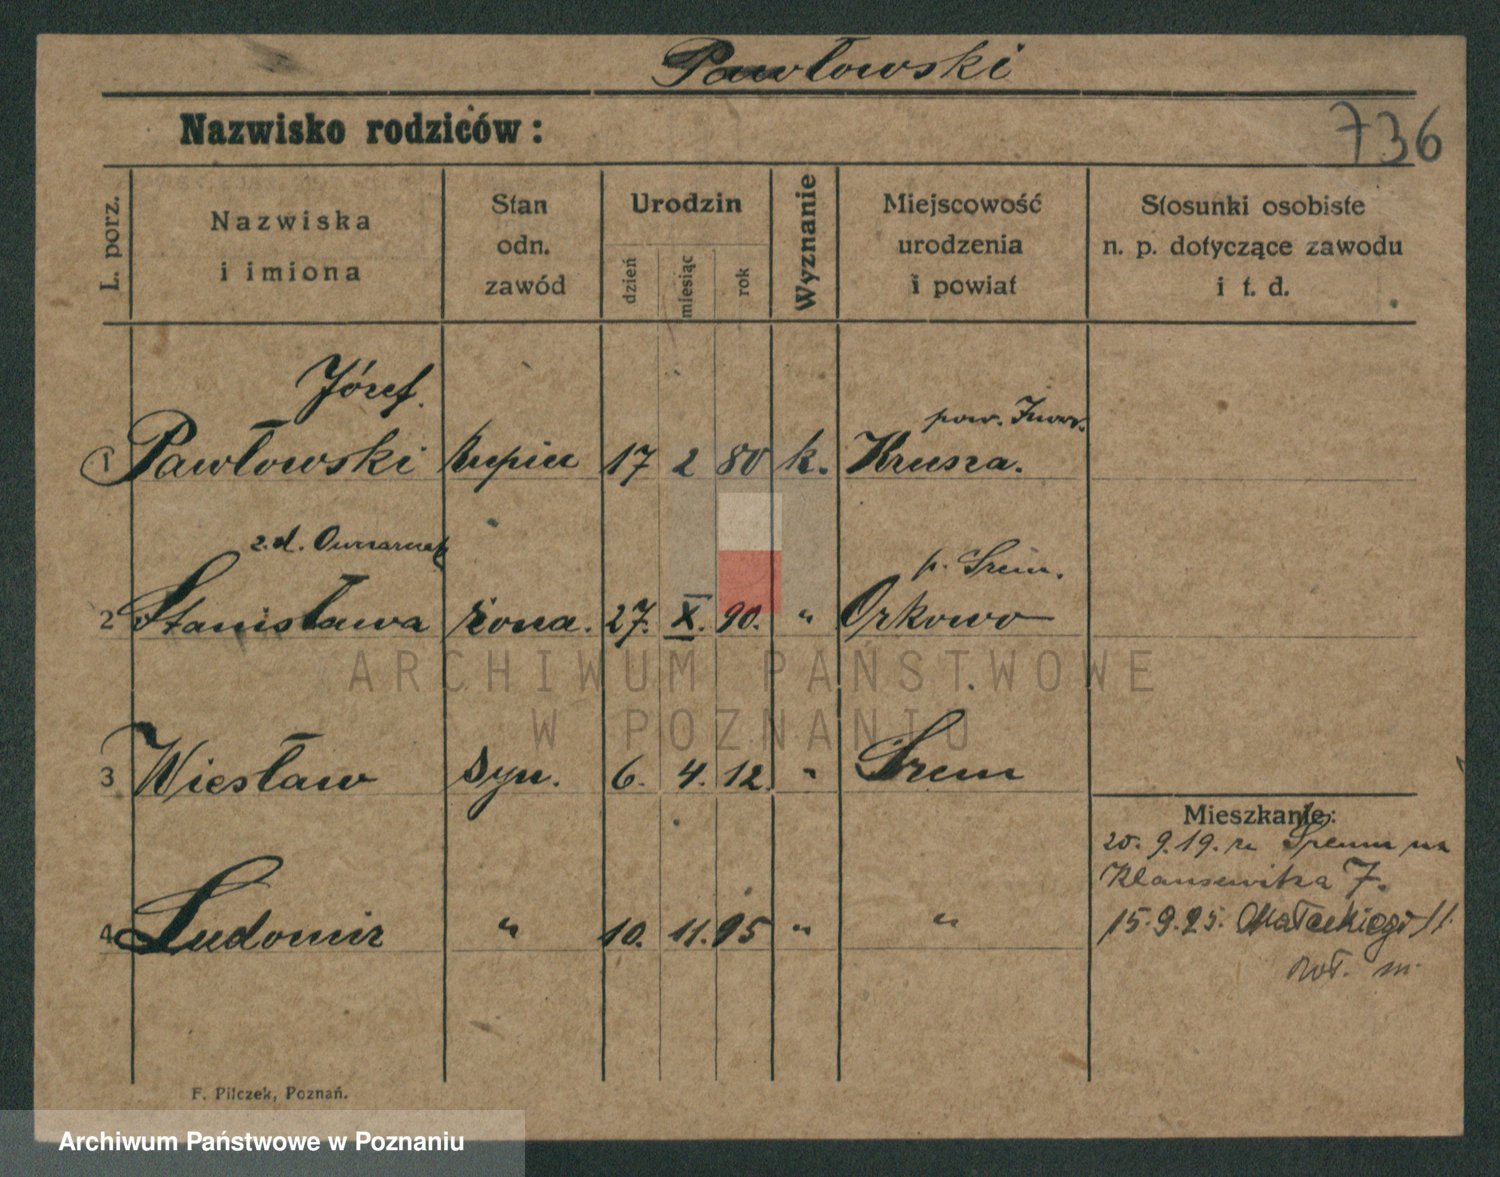 Pawłowski
Nazwisko rodziców:
736
L. porz.
Nazwiska
i imiona
Stan
odn.
zawód
Urodzin
dzień
miesiąc
rok
Wyznanie
Miejscowość
urodzenia
i powiat
Stosunki osobiste
n. p. dotyczące zawodu
i t. d.
Józef.
pow. Inowr.
1 Pawłowski kupiec 17 2 80 k. Krusza.
z. d. Owczarzak
p. Śrem.
2 Stanisława żona. 27. X. 90. " Orkowo
3 Wiesław syn. 6. 4. 12. " Śrem
4 Ludomir " 10. 11. 95 " "
Mieszkanie:
20. 9. 19. z Śremu na
7.
15. 9. 25. Małeckiego 11.
m.
F. Pilczek, Poznań.
ARCHIWUM PAŃSTWOWE
W POZNANIU
Archiwum Państwowe w Poznaniu